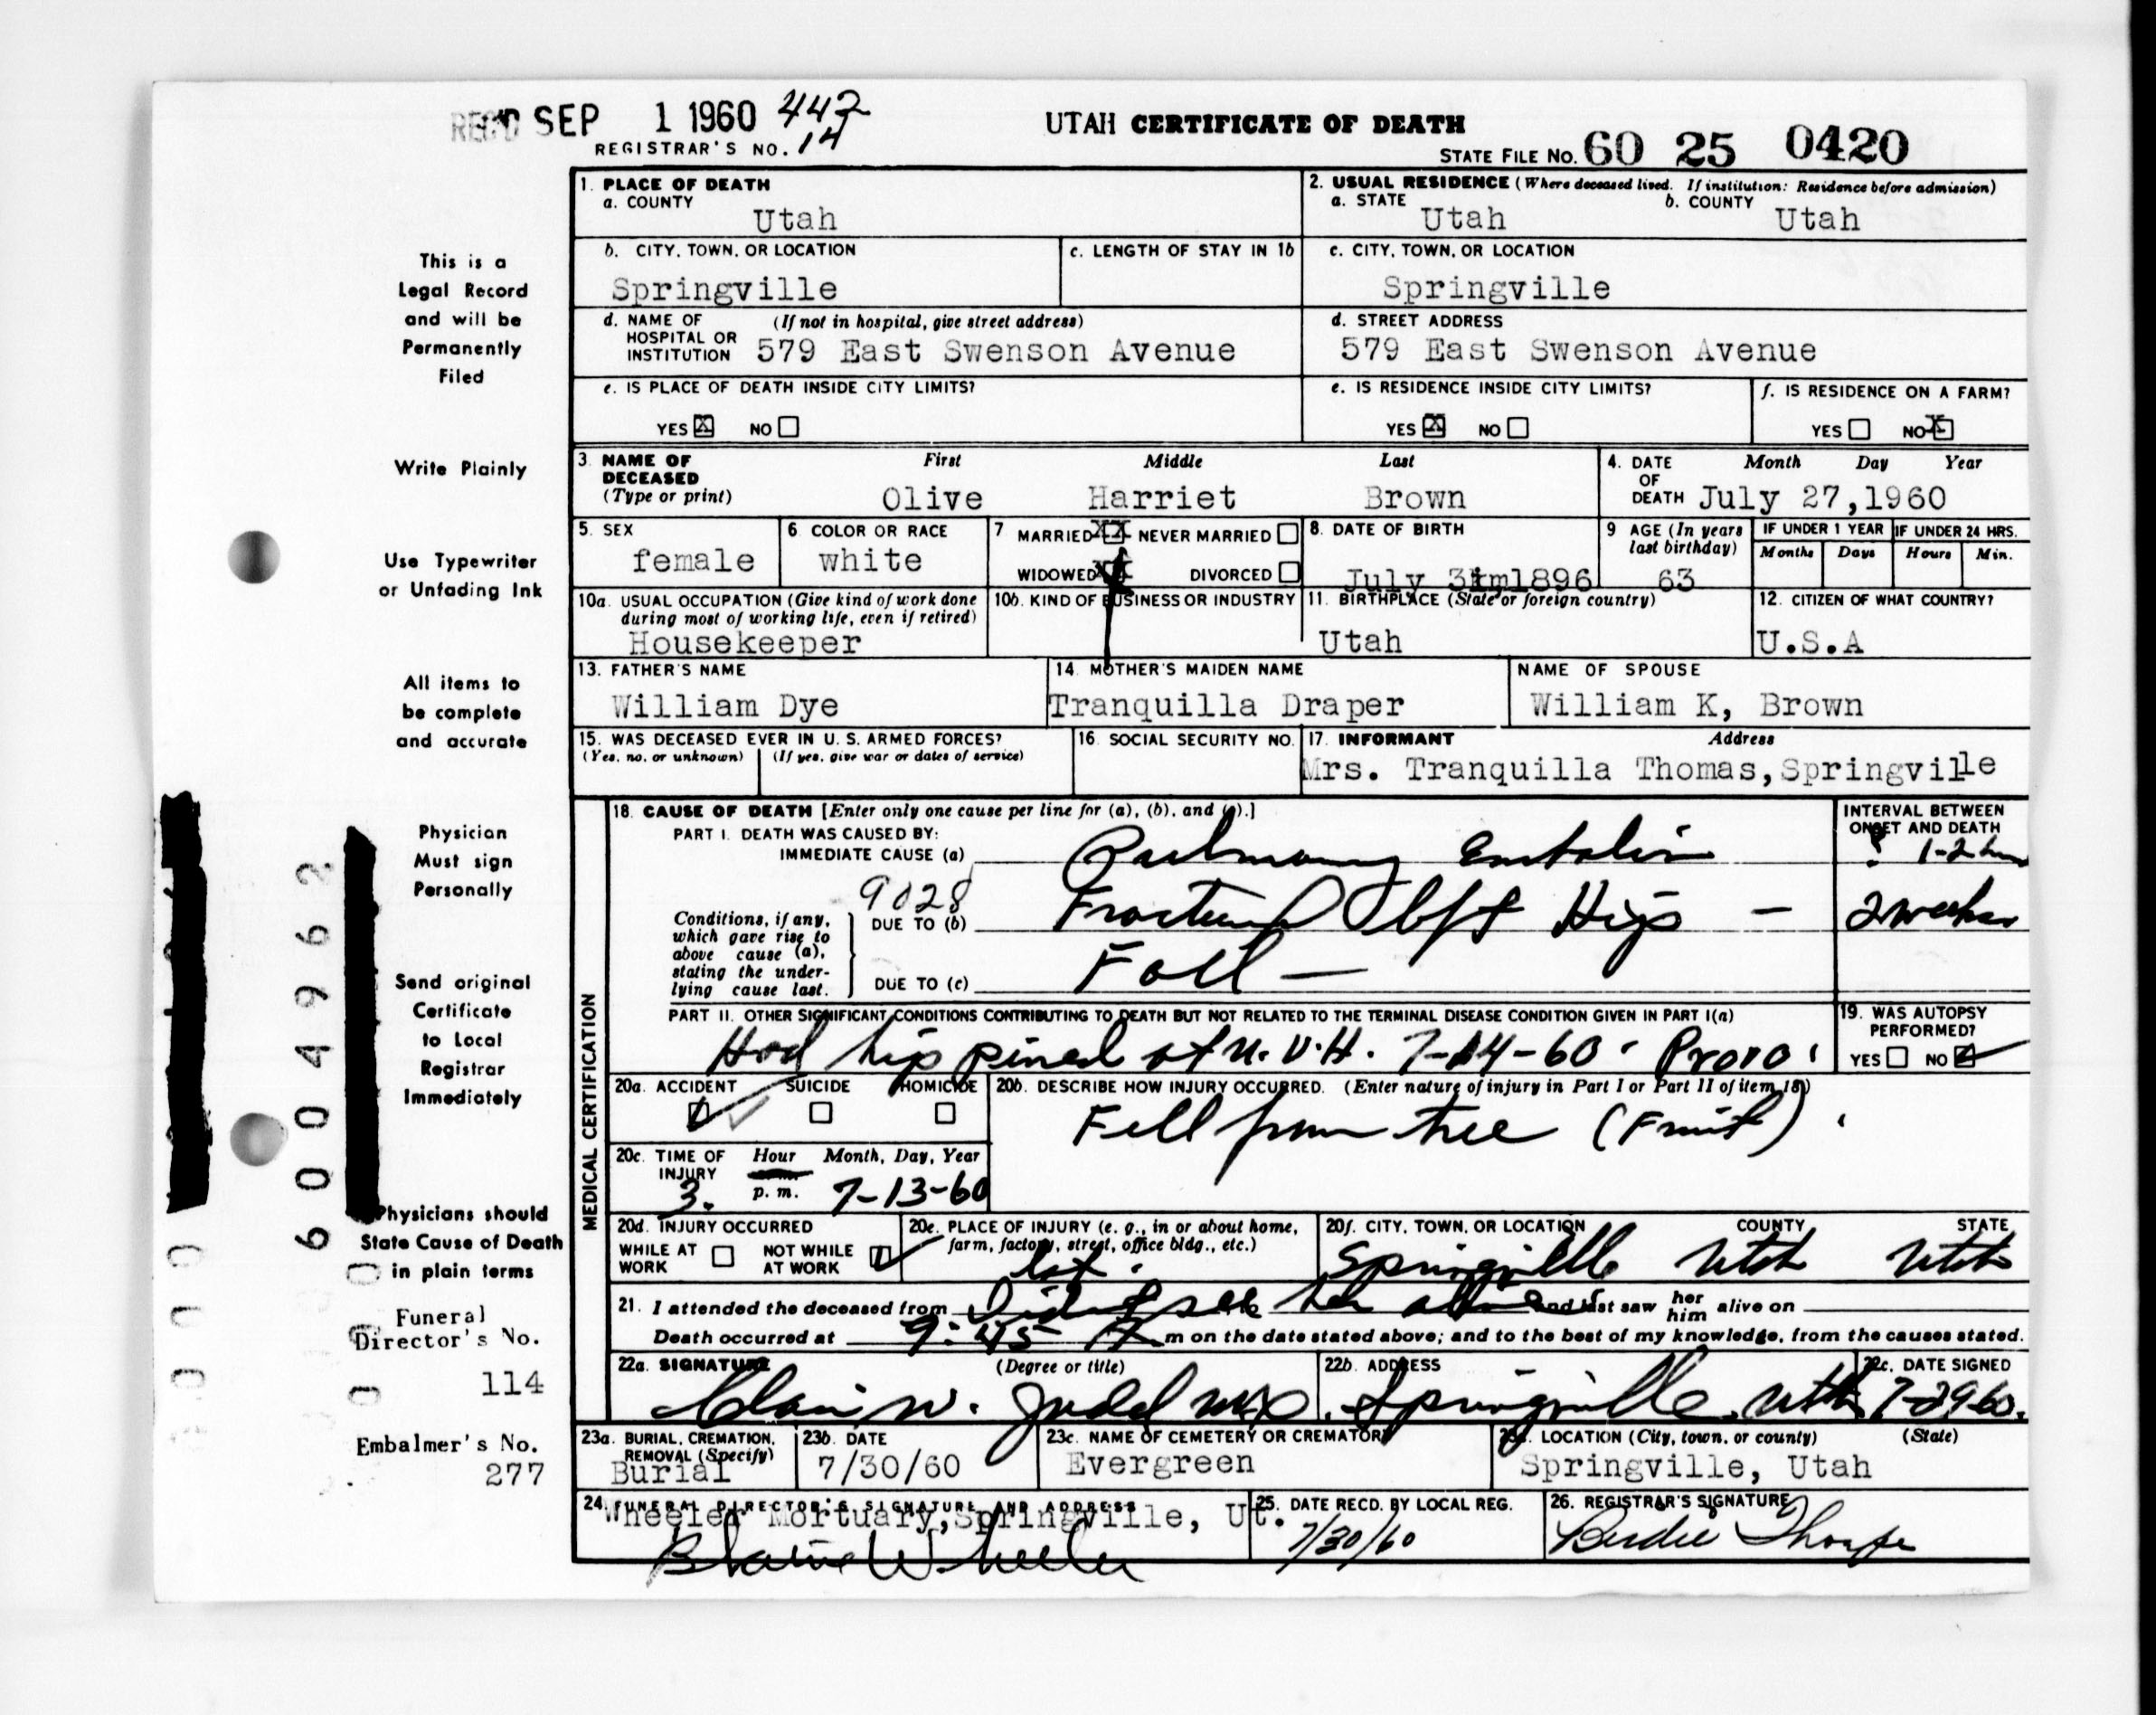 REC'D SEP 1 1960 442
REGISTRAR'S NO. 14
UTAH CERTIFICATE OF DEATH
STATE FILE NO. 60 25 0420
1. PLACE OF DEATH
a. COUNTY
Utah
2. USUAL RESIDENCE (Where deceased lived. If institution: Residence before admission)
a. STATE b. COUNTY
Utah Utah
b. CITY, TOWN, OR LOCATION
Springville
c. LENGTH OF STAY IN 1b
c. CITY, TOWN, OR LOCATION
Springville
d. NAME OF (If not in hospital, give street address)
HOSPITAL OR
INSTITUTION 579 East Swenson Avenue
d. STREET ADDRESS
579 East Swenson Avenue
e. IS PLACE OF DEATH INSIDE CITY LIMITS?
YES X NO
e. IS RESIDENCE INSIDE CITY LIMITS?
YES X NO
f. IS RESIDENCE ON A FARM?
YES NO X
3. NAME OF First Middle Last
DECEASED
(Type or print) Olive Harriet Brown
4. DATE Month Day Year
OF
DEATH July 27,1960
5. SEX
female
6. COLOR OR RACE
white
7 MARRIED XX NEVER MARRIED
WIDOWED DIVORCED
8. DATE OF BIRTH
July 1896
9 AGE (In years
last birthday)
63
IF UNDER 1 YEAR IF UNDER 24 HRS.
Months Days Hours Min.
10a. USUAL OCCUPATION (Give kind of work done
during most of working life, even if retired)
Housekeeper
10b. KIND OF BUSINESS OR INDUSTRY
11. BIRTHPLACE (State or foreign country)
Utah
12. CITIZEN OF WHAT COUNTRY?
U.S.A
13. FATHER'S NAME
William Dye
14. MOTHER'S MAIDEN NAME
Tranquilla Draper
NAME OF SPOUSE
William K, Brown
15. WAS DECEASED EVER IN U. S. ARMED FORCES?
(Yes, no, or unknown) (If yes, give war or dates of service)
16. SOCIAL SECURITY NO.
17. INFORMANT Address
Mrs. Tranquilla Thomas,Springville
MEDICAL CERTIFICATION
18. CAUSE OF DEATH [Enter only one cause per line for (a), (b), and (c).]
PART I. DEATH WAS CAUSED BY:
IMMEDIATE CAUSE (a) Pulmonary Embolism
INTERVAL BETWEEN
ONSET AND DEATH
? 1-2 hrs
9028
Conditions, if any,
which gave rise to
above cause (a),
stating the under-
lying cause last.
DUE TO (b) Fractured left Hip — 2 weeks
DUE TO (c) Fall —
PART II. OTHER SIGNIFICANT CONDITIONS CONTRIBUTING TO DEATH BUT NOT RELATED TO THE TERMINAL DISEASE CONDITION GIVEN IN PART I(a)
Had hip pined at U.V.H. 7-14-60 Provo
19. WAS AUTOPSY
PERFORMED?
YES NO
20a. ACCIDENT SUICIDE HOMICIDE
20b. DESCRIBE HOW INJURY OCCURRED. (Enter nature of injury in Part I or Part II of item 18)
Fell from tree (Fruit)
20c. TIME OF Hour Month, Day, Year
INJURY
3. p. m. 7-13-60
20d. INJURY OCCURRED
WHILE AT NOT WHILE
WORK AT WORK
20e. PLACE OF INJURY (e. g., in or about home,
farm, factory, street, office bldg., etc.)
lot.
20f. CITY, TOWN, OR LOCATION COUNTY STATE
Springville Utah Utah
21. I attended the deceased from Didnt see her alive and last saw her him alive on
Death occurred at 9:45 m on the date stated above; and to the best of my knowledge, from the causes stated.
22a. SIGNATURE (Degree or title)
Clair W. Judd MD.
22b. ADDRESS
Springville Utah
22c. DATE SIGNED
7-29-60.
23a. BURIAL, CREMATION,
REMOVAL (Specify)
Burial
23b. DATE
7/30/60
23c. NAME OF CEMETERY OR CREMATORY
Evergreen
23d. LOCATION (City, town, or county) (State)
Springville, Utah
24. FUNERAL DIRECTOR'S SIGNATURE AND ADDRESS
Wheeler Mortuary,Springville, Ut.
Blaine Wheeler
25. DATE RECD. BY LOCAL REG.
7/30/60
26. REGISTRAR'S SIGNATURE
Birdie Thorpe
This is a
Legal Record
and will be
Permanently
Filed
Write Plainly
Use Typewriter
or Unfading Ink
All items to
be complete
and accurate
Physician
Must sign
Personally
Send original
Certificate
to Local
Registrar
Immediately
Physicians should
State Cause of Death
in plain terms
Funeral
Director's No.
114
Embalmer's No.
277
6004962